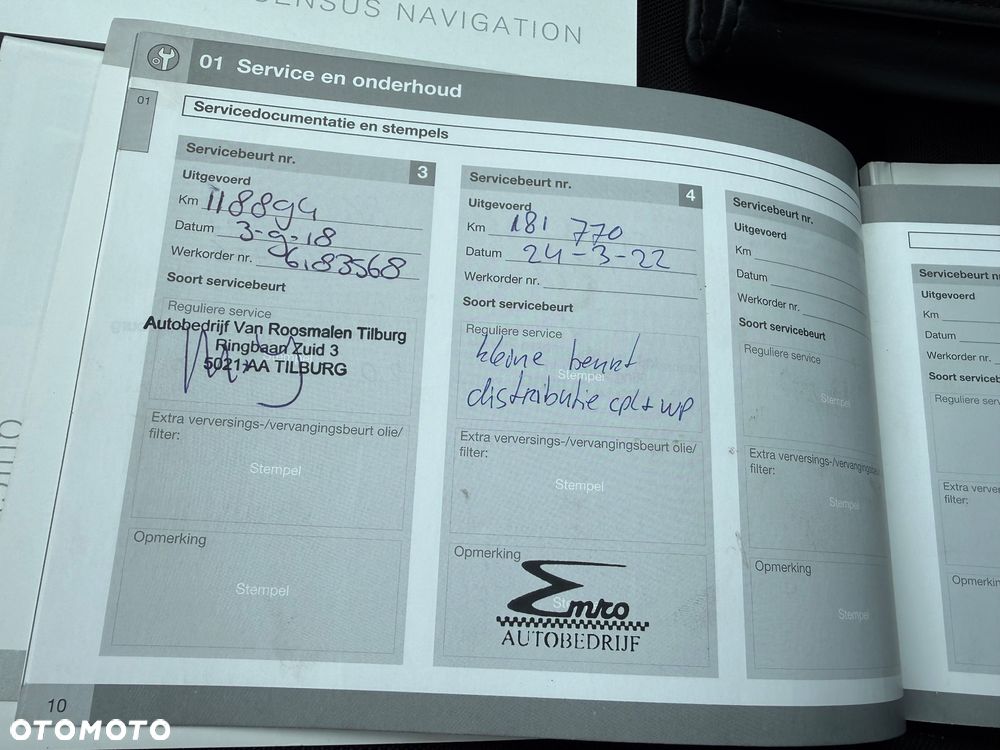 SENSUS NAVIGATION
01 Service en onderhoud
01
Servicedocumentatie en stempels
Servicebeurt nr. 3
Uitgevoerd
Km 118894
Datum 3-9-18
Werkorder nr. 6183568
Soort servicebeurt
Reguliere service
Autobedrijf Van Roosmalen Tilburg
Ringbaan Zuid 3
5021 AA TILBURG
Extra verversings-/vervangingsbeurt olie/
filter:
Stempel
Opmerking
Stempel
Servicebeurt nr. 4
Uitgevoerd
Km 181 770
Datum 24-3-22
Werkorder nr.
Soort servicebeurt
Reguliere service
Stempel
kleine beurt
distributie cpl + wp
Extra verversings-/vervangingsbeurt olie/
filter:
Stempel
Opmerking
Emro
AUTOBEDRIJF
Servicebeurt nr.
Uitgevoerd
Km
Datum
Werkorder nr.
Soort servicebeurt
Reguliere service
Stempel
Extra verversings-/vervangingsbeu
filter:
Stempel
Opmerking
Stempel
Servicebeurt n
Uitgevoerd
Km
Datum
Werkorder nr.
Soort serviceb
Reguliere serv
Extra verver
filter:
Opmerkin
10
OTOMOTO